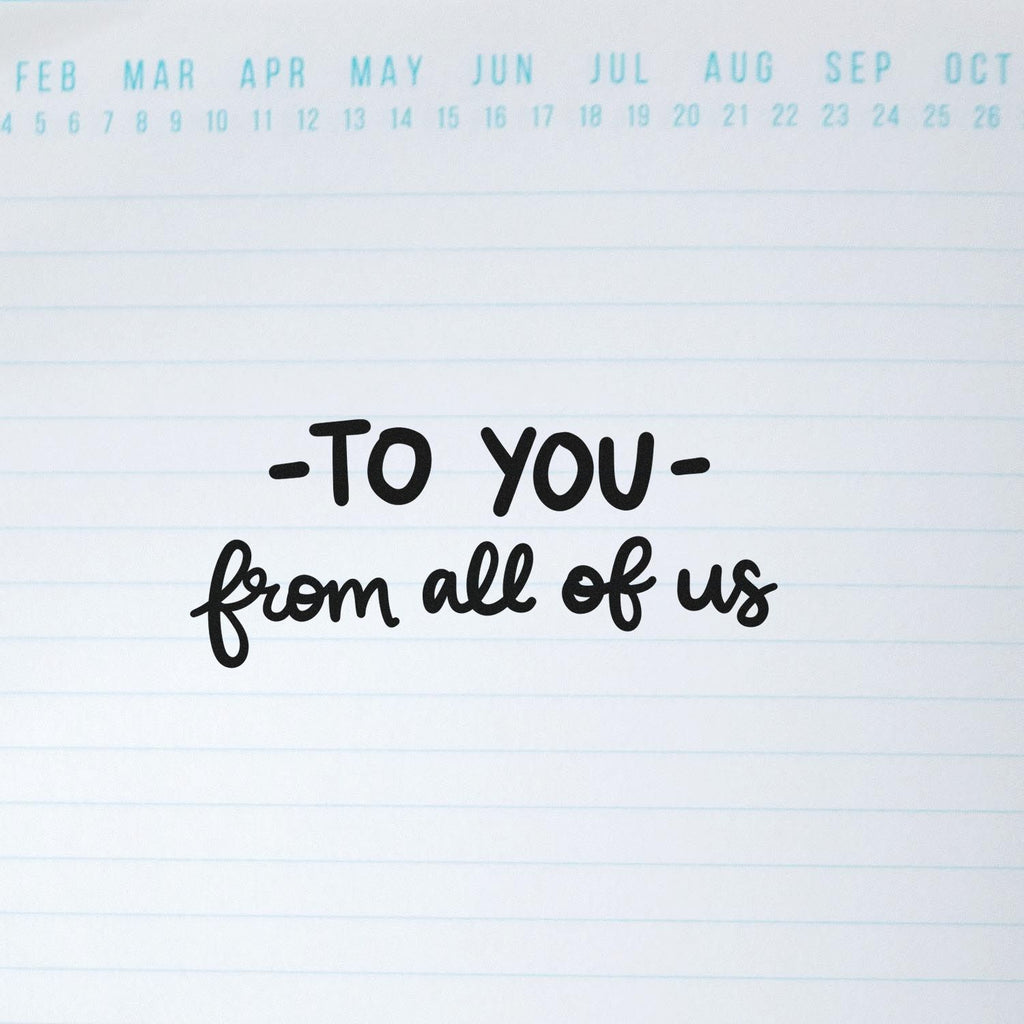 FEB MAR APR MAY JUN JUL AUG SEP OCT
4 5 6 7 8 9 10 11 12 13 14 15 16 17 18 19 20 21 22 23 24 25 26
-TO YOU-
from all of us